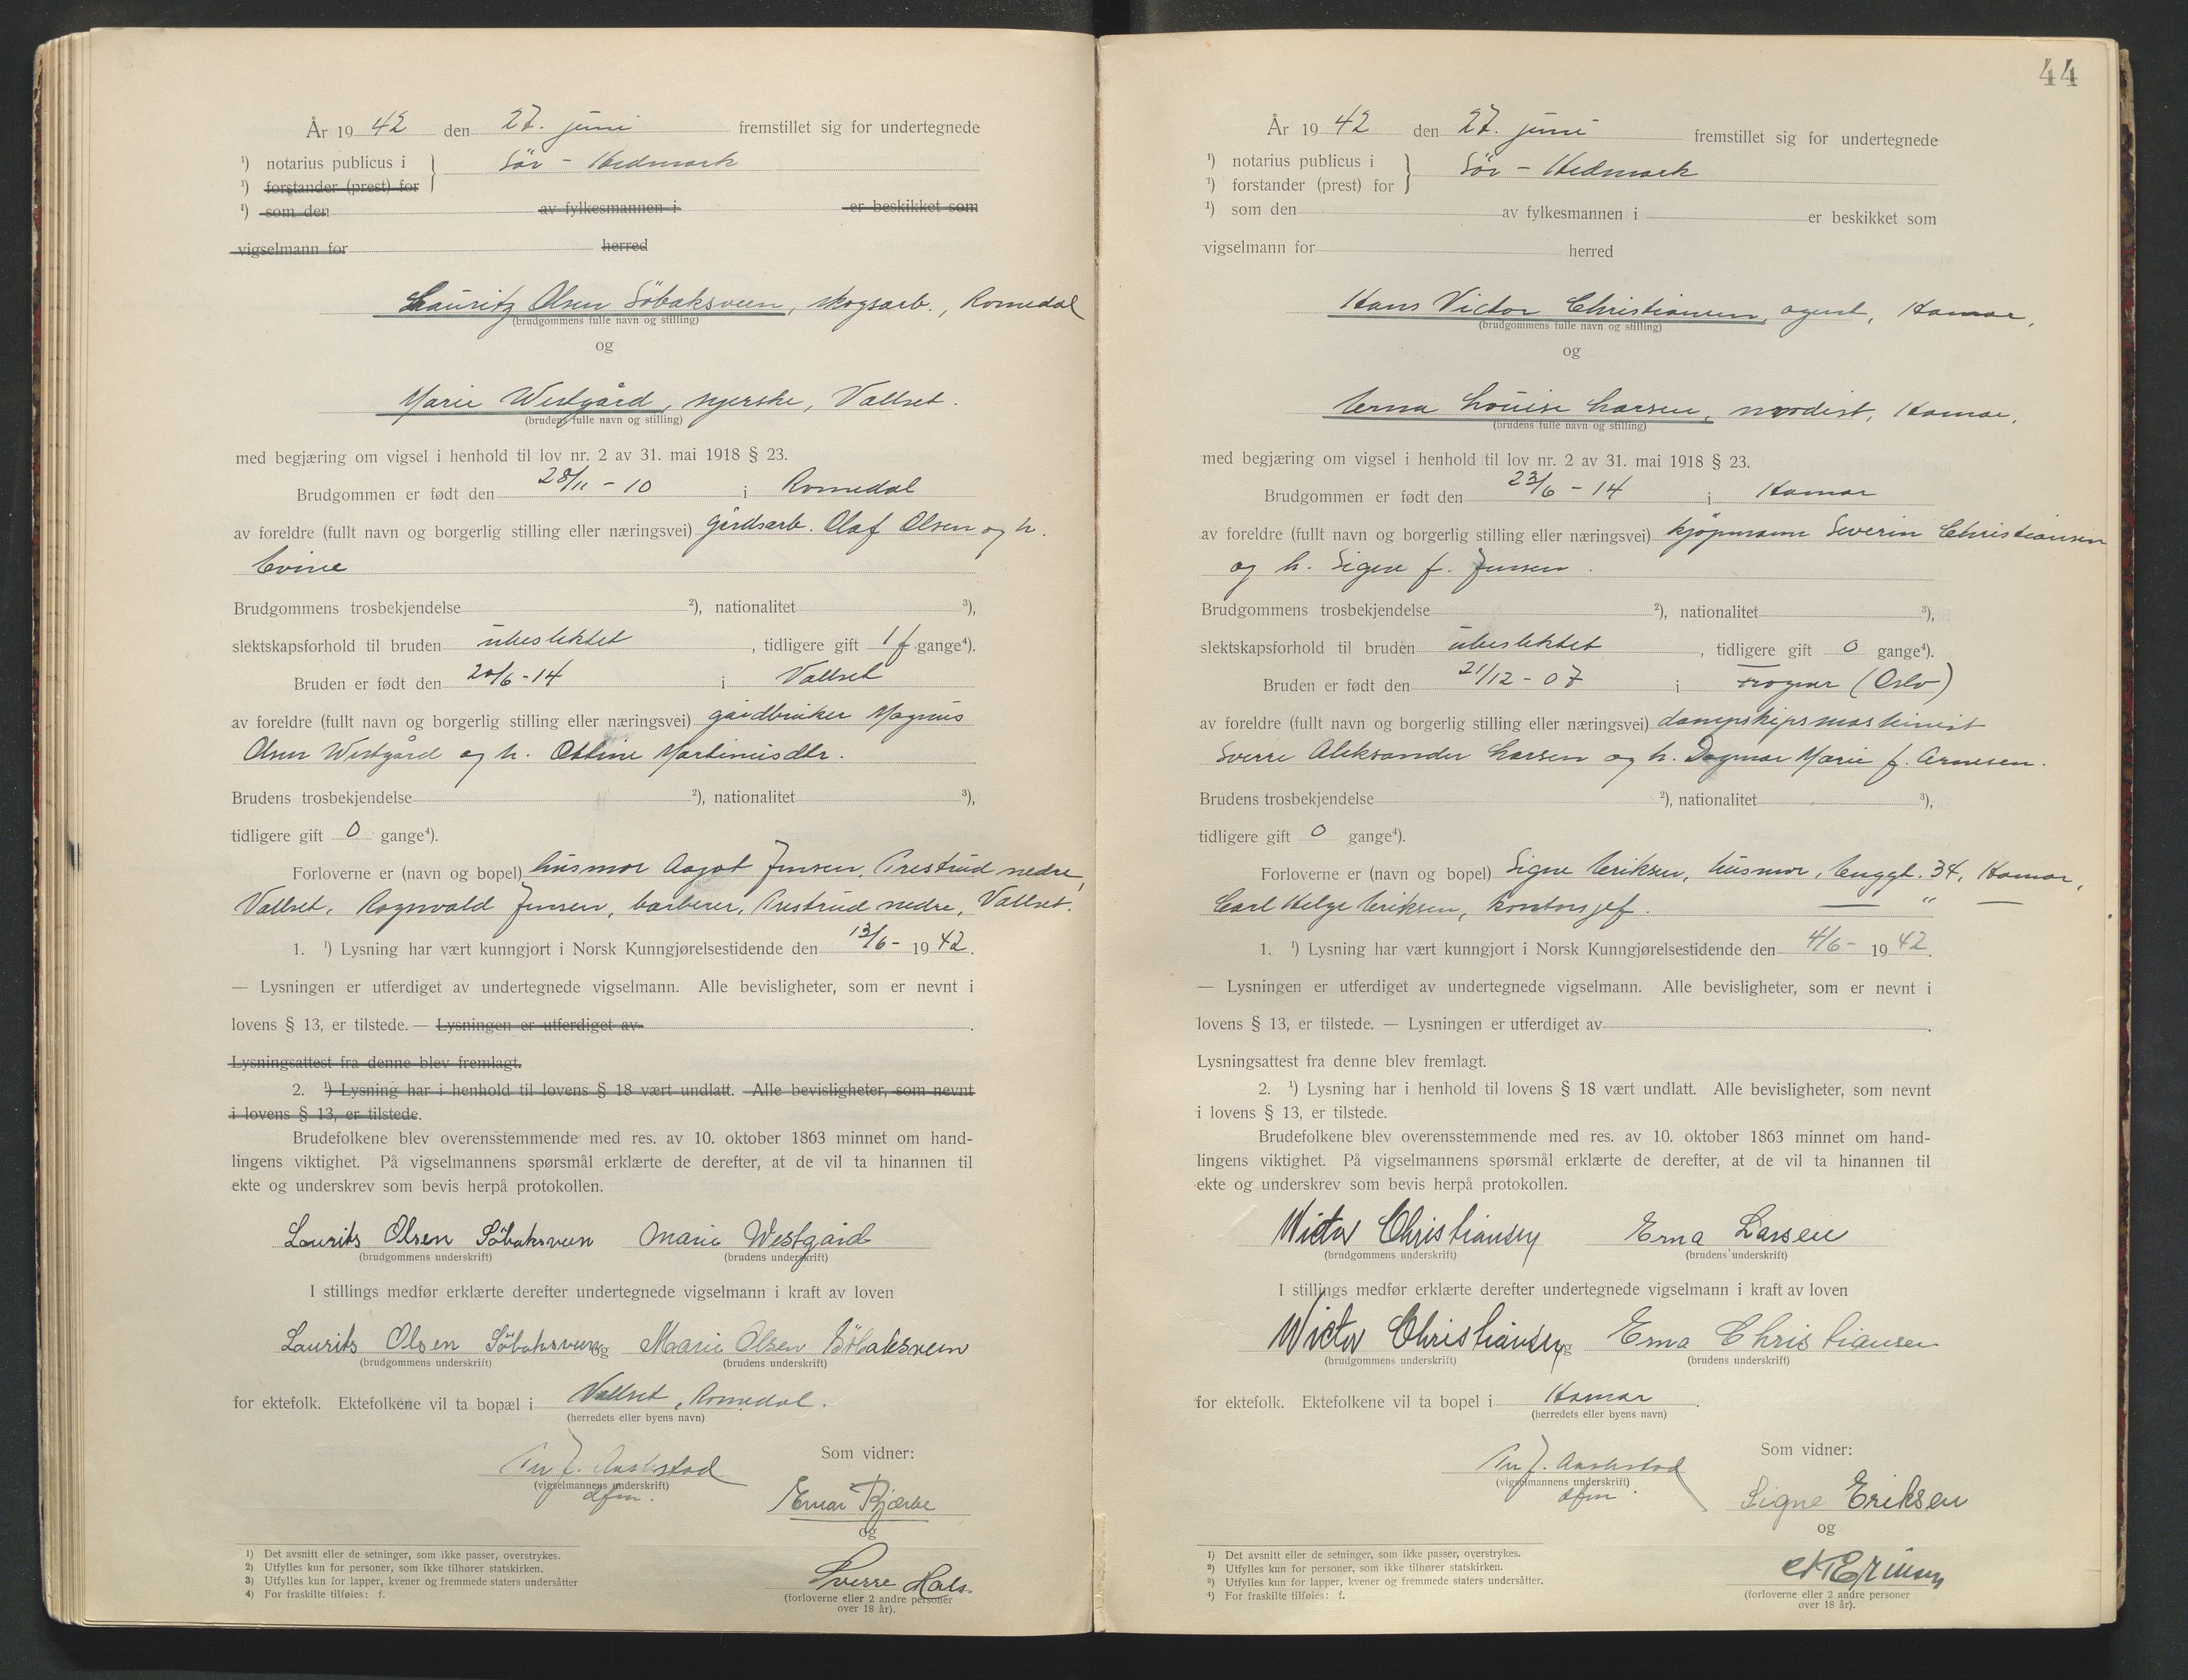 År 19 42 den 27. juni fremstillet sig for undertegnede
¹) notarius publicus i } Sør - Hedmark
¹) forstander (prest) for
¹) som den av fylkesmannen i er beskikket som
vigselmann for herred
Lauritz Olsen Söbaksveen, skogsarb., Romedal
(brudgommens fulle navn og stilling)
og
Marie Westgård, syerske, Vallset.
(brudens fulle navn og stilling)
med begjæring om vigsel i henhold til lov nr. 2 av 31. mai 1918 § 23.
Brudgommen er født den 28/11 - 10 i Romedal
av foreldre (fullt navn og borgerlig stilling eller næringsvei) gårdsarb. Olaf Olsen og h.
Evine
Brudgommens trosbekjendelse ²), nationalitet ³),
slektskapsforhold til bruden ubeslektet, tidligere gift 1 f gange⁴).
Bruden er født den 20/6 - 14 i Vallset
av foreldre (fullt navn og borgerlig stilling eller næringsvei) gårdbruker Magnus
Olsen Westgård og h. Oline Martinusdtr.
Brudens trosbekjendelse ²), nationalitet ³),
tidligere gift 0 gange⁴).
Forloverne er (navn og bopel) husmor Aagot Jensen, Prestrud nedre,
Vallset, Ragnvald Jensen, barberer, Prestrud nedre, Vallset.
1. ¹) Lysning har vært kunngjort i Norsk Kunngjørelsestidende den 13/6 - 19 42.
— Lysningen er utferdiget av undertegnede vigselmann. Alle bevisligheter, som er nevnt i
lovens § 13, er tilstede. — Lysningen er utferdiget av .
Lysningsattest fra denne blev fremlagt.
2. ¹) Lysning har i henhold til lovens § 18 vært undlatt. Alle bevisligheter, som nevnt
i lovens § 13, er tilstede.
Brudefolkene blev overensstemmende med res. av 10. oktober 1863 minnet om hand-
lingens viktighet. På vigselmannens spørsmål erklærte de derefter, at de vil ta hinannen til
ekte og underskrev som bevis herpå protokollen.
Laurits Olsen Söbaksveen Marie Westgård
(brudgommens underskrift) (brudens underskrift)
I stillings medfør erklærte derefter undertegnede vigselmann i kraft av loven
Laurits Olsen Söbaksveen og Marie Olsen Söbaksveen
(brudgommens underskrift) (brudens underskrift)
for ektefolk. Ektefolkene vil ta bopæl i Vallset, Romedal.
(herredets eller byens navn)
Som vidner:
Per J. Aashstad
(vigselmannens underskrift)
dfm.
Einar Bjærke
og
Sverre Hals.
(forloverne eller 2 andre personer
over 18 år).
1) Det avsnitt eller de setninger, som ikke passer, overstrykes.
2) Utfylles kun for personer, som ikke tilhører statskirken.
3) Utfylles kun for lapper, kvener og fremmede staters undersåtter
4) For fraskilte tilføies: f.
44
År 19 42 den 27. juni fremstillet sig for undertegnede
¹) notarius publicus i } Sør - Hedmark
¹) forstander (prest) for
¹) som den av fylkesmannen i er beskikket som
vigselmann for herred
Hans Victor Christiansen, agent, Hamar,
(brudgommens fulle navn og stilling)
og
Erna Louise Larsen, modist, Hamar,
(brudens fulle navn og stilling)
med begjæring om vigsel i henhold til lov nr. 2 av 31. mai 1918 § 23.
Brudgommen er født den 23/6 - 14 i Hamar
av foreldre (fullt navn og borgerlig stilling eller næringsvei) kjøpmann Severin Christiansen
og h. Signe f. Jensen.
Brudgommens trosbekjendelse ²), nationalitet ³),
slektskapsforhold til bruden ubeslektet, tidligere gift 0 gange⁴).
Bruden er født den 21/12 - 07 i Frogner (Oslo)
av foreldre (fullt navn og borgerlig stilling eller næringsvei) dampskipsmaskinist
Sverre Aleksander Larsen og h. Dagmar Marie f. Arnesen.
Brudens trosbekjendelse ²), nationalitet ³),
tidligere gift 0 gange⁴).
Forloverne er (navn og bopel) Signe Eriksen, husmor, Enggt. 34, Hamar,
Carl Helge Eriksen, kontorsjef. — " —
1. ¹) Lysning har vært kunngjort i Norsk Kunngjørelsestidende den 4/6 - 19 42.
— Lysningen er utferdiget av undertegnede vigselmann. Alle bevisligheter, som er nevnt i
lovens § 13, er tilstede. — Lysningen er utferdiget av .
Lysningsattest fra denne blev fremlagt.
2. ¹) Lysning har i henhold til lovens § 18 vært undlatt. Alle bevisligheter, som nevnt
i lovens § 13, er tilstede.
Brudefolkene blev overensstemmende med res. av 10. oktober 1863 minnet om hand-
lingens viktighet. På vigselmannens spørsmål erklærte de derefter, at de vil ta hinannen til
ekte og underskrev som bevis herpå protokollen.
Victor Christiansen Erna Larsen
(brudgommens underskrift) (brudens underskrift)
I stillings medfør erklærte derefter undertegnede vigselmann i kraft av loven
Victor Christiansen og Erna Christiansen
(brudgommens underskrift) (brudens underskrift)
for ektefolk. Ektefolkene vil ta bopel i Hamar.
(herredets eller byens navn)
Som vidner:
Per J. Aashstad
(vigselmannens underskrift)
dfm.
Signe Eriksen
og
(forloverne eller 2 andre personer
over 18 år).
1) Det avsnitt eller de setninger, som ikke passer, overstrykes.
2) Utfylles kun for personer, som ikke tilhører statskirken.
3) Utfylles kun for lapper, kvener og fremmede staters undersåtter.
4) For fraskilte tilføies: f.